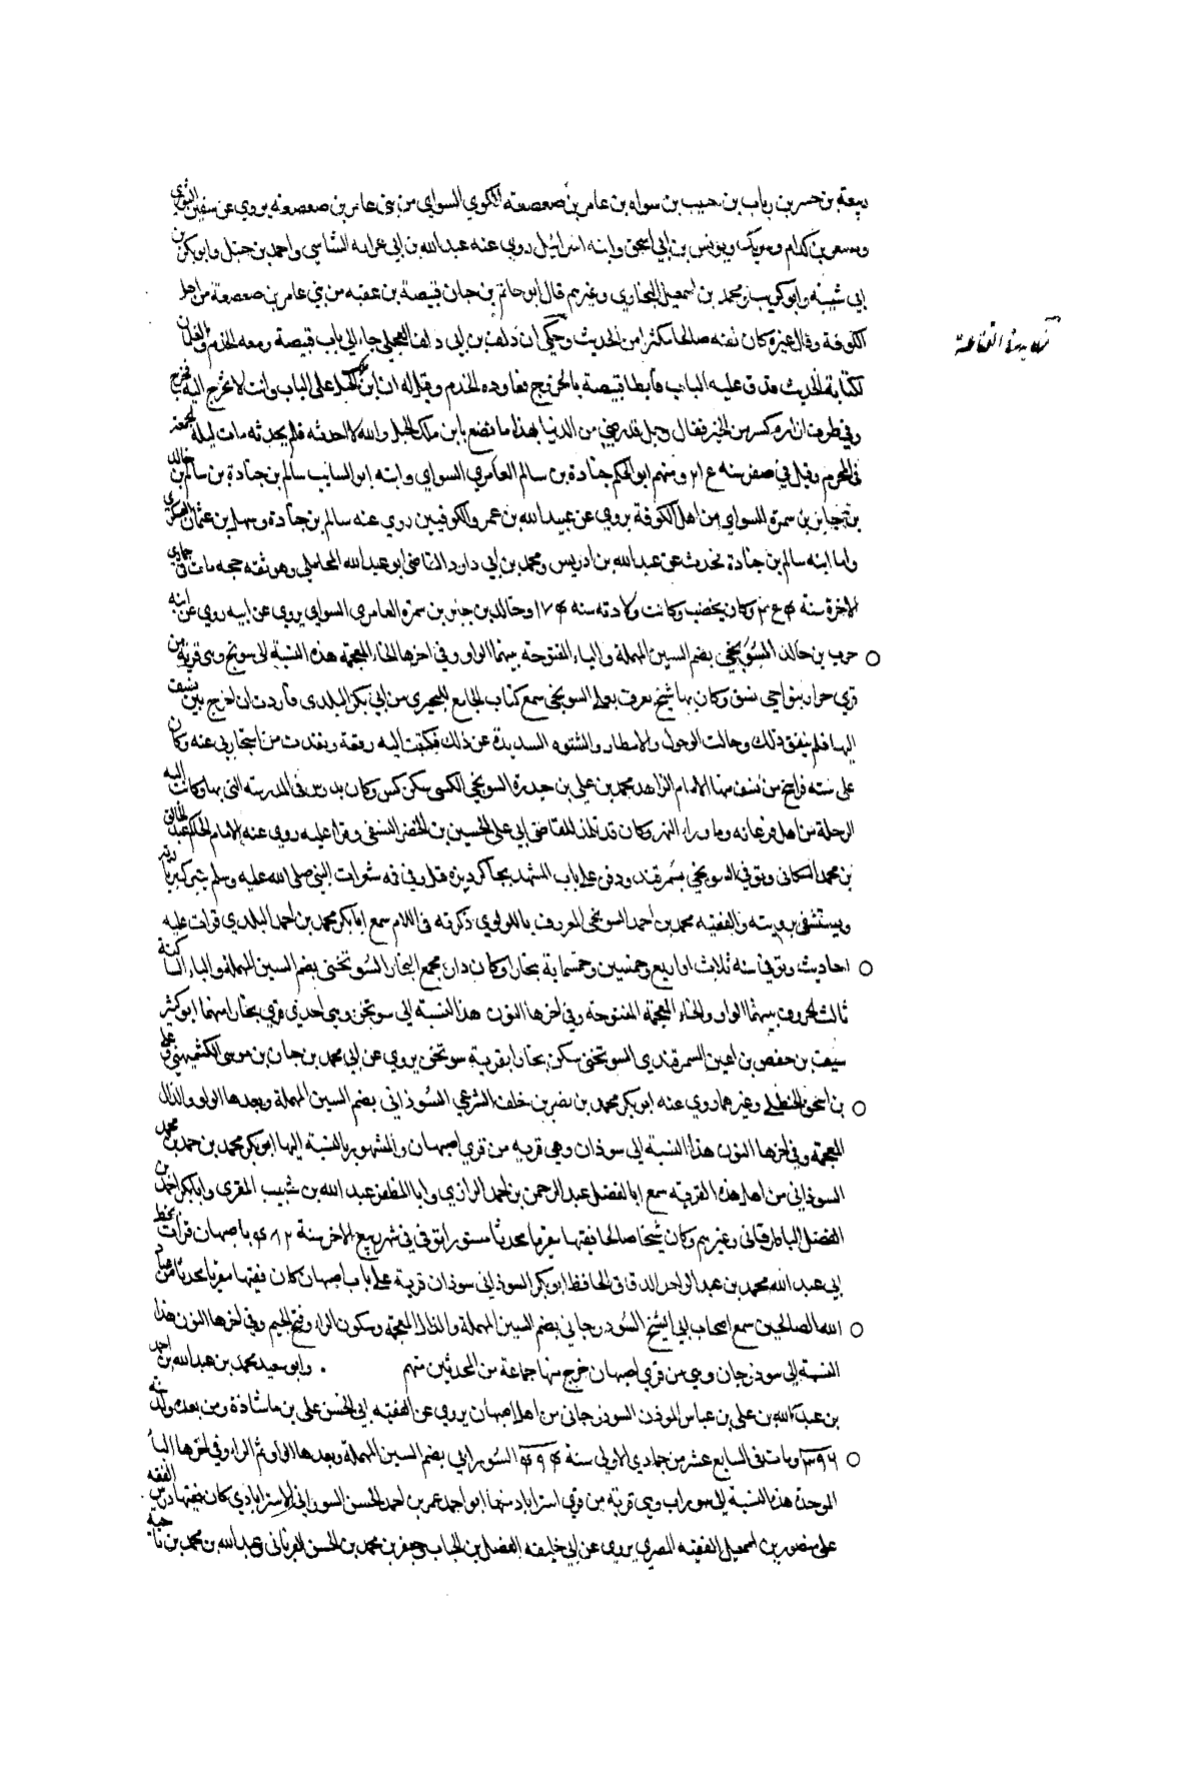 ربيعة بن حسر بن رباب بن حبيب بن سواه بن عامر بن صعصعة الكوفي السواي من بني عامر بن صعصعة يروي عن سفين الثوري
ومسعر بن كدام وشريك ويونس بن ابي اسحق وابنه اسرائيل روى عنه عبد الله بن ابي عرابه الشاشي واحمد بن حنبل وابو بكر بن
ابي شيبة وابو كريب ومحمد بن اسمعيل البخاري وغيرهم قال ابو حاتم بن حبان قبيصة بن عقبه من بني عامر بن صعصعة من اهل
الكوفة وقال غيره كان ثقه صالحا مكثرا من الحديث وحكي ان دلف بن ابي دلف العجلي جاء الى باب قبيصة ومعه الخدم والغلمان
لكتابة الحديث فدق عليه الباب فابطا قبيصة بالخروج فعاوده الخدم وقيل له ان ابن ملك الجبل على الباب وانت لا تخرج اليه فخرج
وفي طرف ازاره كسر من الخبز فقال رجل قد رضي من الدنيا بهذا ما يصنع بابن ملك الجبل والله لا احدثه فلم يحدثه مات ليلة الجمعة
في المحرم وقيل في صفر سنه ومنهم ابو الحكم جنادة بن سالم العامري السواي وابنه ابو السايب سالم بن جنادة بن سالم بن خالد
بن جابر بن سمرة السواي من اهل الكوفة يروي عن عبيد الله بن عمر والكوفيين روي عنه سالم بن جنادة وسهل بن عثمان العسكري
واما ابنه سالم بن جنادة فحدث عن عبد الله بن ادريس ومحمد بن ابي داود القاضي ابو عبد الله المحاملي وهو ثقه حجه مات في جمادي
الاخرة سنة وكان يخضب وكانت ولادته سنه وخالد بن جابر بن سمرة العامري السواي يروي عن ابيه روي عن ابنه
حرب بن خالد السُوَيخي بضم السين المهملة والياء المفتوحة بينهما الواو وفي اخرها الخاء المعجمة هذه النسبة الى سويخ وهى قرية من
قري حرار بنواحي نسف وكان بها شيخ يعرف بعلى السويخي سمع كتاب الجامع للبجيرى من ابي بكر البلدى فاردت ان اخرج بنسف
اليها فلم يتفق ذلك وحالت الوحول والامطار والشتوه الشديدة عن ذلك فكتبت اليه رقعة ونفدت من استجار لي عنه وكان
على سته فراسخ من نسف منها الامام الزاهد محمد بن علي بن حيدرة السويخي الكسى سكن كس وكان يدرس في المدرسة التي بها وكانت اليه
الرحلة من اهل فرغانه وما وراء النهر وكان قد تلمذ للقاضي ابي علي الحسين بن الخضر النسفي وقرا عليه روي عنه الامام الحاكم عبد الخالق
بن محمد السكاني وتوفي السويخي بسمرقند ودفن على باب المشهد بجاكرديزه قيل وفي فه شعرات النبي صلى الله عليه وسلم يتبرك بزيارته
ويستشفى بتربته والفقيه محمد بن احمد السويخي المعروف باللولوي ذكرته في اللام سمع ابا بكر محمد بن احمد البلدي قرات عليه
احاديث وتوفي سنه ثلاث او اربع وخمسين وخمسماية ببخارا وكان دار مجمع البخار السُوتخني بضم السين المهملة والتاء الساكنة
ثالث الحروف بينهما الواو والخاء المعجمة المفتوحة وفي اخرها النون هذا النسبة الى سوتخن وهى احدي قري بخارا منها ابو كثير
سيف بن حفص بن اعين السمرقندي السوتخني سكن بخارا بقرية سوتخن يروي عن ابي محمد بن حبان بن موسى الكشميهني وعلي
بن اسحق الحنظلي وغيرهما روي عنه ابو بكر محمد بن نصر بن خلف الشرعي السُوذاني بضم السين المهملة وبعدها الواو والذال
المعجمة وفي اخرها النون هذا النسبة الى سوذان وهي قرية من قري اصبهان والمشهور بالنسبة اليها ابو بكر محمد بن حمد بن محمد
السوذاني من اهل هذه القرية سمع ابا الفضل عبد الرحمن بن احمد الرازي وابا المظفر عبد الله بن شبيب المقرى وابا بكر احمد بن
الفضل الباطرقاني وغيرهم وكان شيخا صالحا فقيها مقريا محدثا مستورا توفي في شهر ربيع الاخر سنة باصبهان قرات بخط
ابي عبد الله محمد بن عبد الواحد الدقاق الحافظ ابو بكر السوذاني سوذان قرية على باب اصبهان كان فقيها مقريا محدثا من عباد
الله الصالحين سمع اصحاب ابي الشيخ السُوذرجاني بضم السين المهملة والذال المعجمة وسكون الراء وفتح الجيم وفي اخرها النون هذا
النسبة الى سوذرجان وهي من قري اصبهان خرج منها جماعة من المحدثين منهم وابو سعيد محمد بن عبد الله بن احمد
بن عبد الله بن علي بن عباس المؤذن السوذرجاني من اهل اصبهان يروي عن الفقيه ابي الحسن علي بن ماشاذة ومن بعده ولد سنه
٣٩٦ ومات في السابع عشر من جمادي الاولى سنة السُورابي بضم السين المهملة وبعدها الواو ثم الراء وفي اخرها الباء
الموحدة هذه النسبة الى سوراب وهى قرية من قري استراباد منها ابو احمد عمر بن احمد الحسن السورابي الاستراباذي كان فقيها درس الفقه
على منصور بن اسمعيل الفقيه المصري يروي عن ابي خليفة الفضل بن الحباب وجعفر بن محمد بن الحسن الفريابي وعبد الله بن محمد بن ناجية